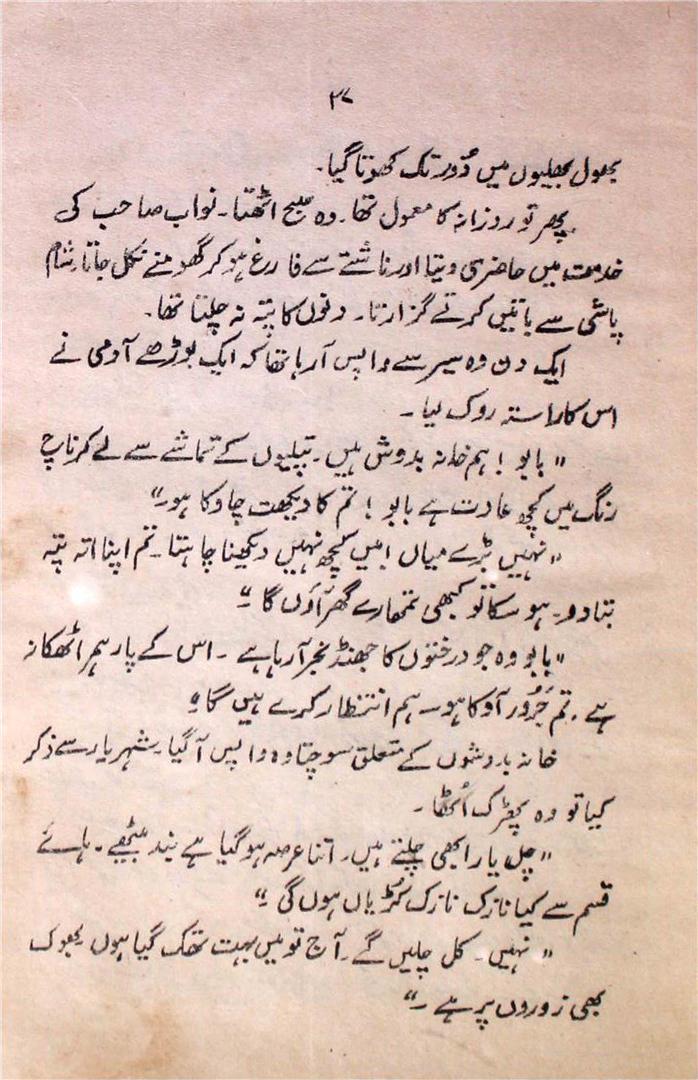 ۲۷
بھول بھلیوں میں دُور تک کھوتا گیا۔
پھر تو روزانہ کا معمول تھا۔ وہ صبح اٹھتا۔ نواب صاحب کی
خدمت میں حاضری دیتا اور ناشتے سے فارغ ہو کر گھومنے نکل جاتا۔ شام
پاشی سے باتیں کرتے گزارتا۔ دنوں کا پتہ نہ چلتا تھا۔
ایک دن وہ سیر سے واپس آرہا تھا کہ ایک بوڑھے آدمی نے
اس کا راستہ روک لیا۔
"بابو! ہم خانہ بدوش ہیں۔ پتلیوں کے تماشے سے لے کر ناچ
رنگ میں کچھ عادت ہے بابو! تم کا دیکھت چاوکا ہو۔"
"نہیں بڑے میاں! میں کچھ نہیں دیکھنا چاہتا۔ تم اپنا اتہ پتہ
بتا دو۔ ہو سکا تو کبھی تمھارے گھر آؤں گا۔"
"بابو وہ جو درختوں کا جھنڈ نجر آرہا ہے۔ اس کے پار ہمرا ٹھکانہ
ہے۔ تم جَرُور آوکا ہو۔ ہم انتظار کرے ہیں گا۔"
خانہ بدوشوں کے متعلق سوچتا وہ واپس آگیا۔ شہریار سے ذکر
کیا تو وہ پھڑک اُٹھا۔
"چل یار ابھی چلتے ہیں۔ اتنا عرصہ ہوگیا ہے بند بیٹھے۔ ہائے
قسم سے کیا نازک نازک کُڑیاں ہوں گی۔"
"نہیں۔ کل چلیں گے۔ آج تو میں بہت تھک گیا ہوں بھوک
بھی زوروں پر ہے۔"